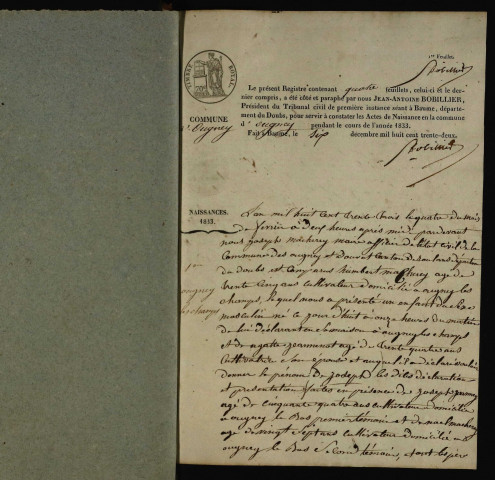 1re Feuillet.
Bobillier
TIMBRE ROYAL
Le présent Registre contenant quatre feuillets, celui-ci et le der-
nier compris, a été côté et paraphé par nous JEAN-ANTOINE BOBILLIER,
Président du Tribunal civil de première instance séant à Baume, départe-
ment du Doubs, pour servir à constater les Actes de Naissance en la commune
d'augney pendant le cours de l'année 1833.
Fait à Baume, le six décembre mil huit cent trente-deux.
Bobillier
COMMUNE
d'augney
NAISSANCES.
1833.
L'an mil huit cent trente trois le quatre du mois
de fevrie a deux heures après midi par devant
nous joseph maire officier de l'état civil de la
Commune des augney et canton de departement
du doubs est comparus humbert age de
trente cinq ans cultivateur domicilié a augney les
champs, lequel nous a présente un enfant du sexe
masculin né ce jour d'huit a onze heures du matin
de lui déclarant en sa maison a augney les champs
et de agathe agé de trente quatre ans
cultivatrice son épouse et auquel il a déclaré vouloir
donner le prénom de joseph les dites déclaration
et presentation faites en présence de joseph
agé de cinquante quatre ans cultivateur domicilié
a augney le Bas premier témoin et de
age de vingt sept ans cultivateur domicilié a
augney le Bas second témoin, et ont le père